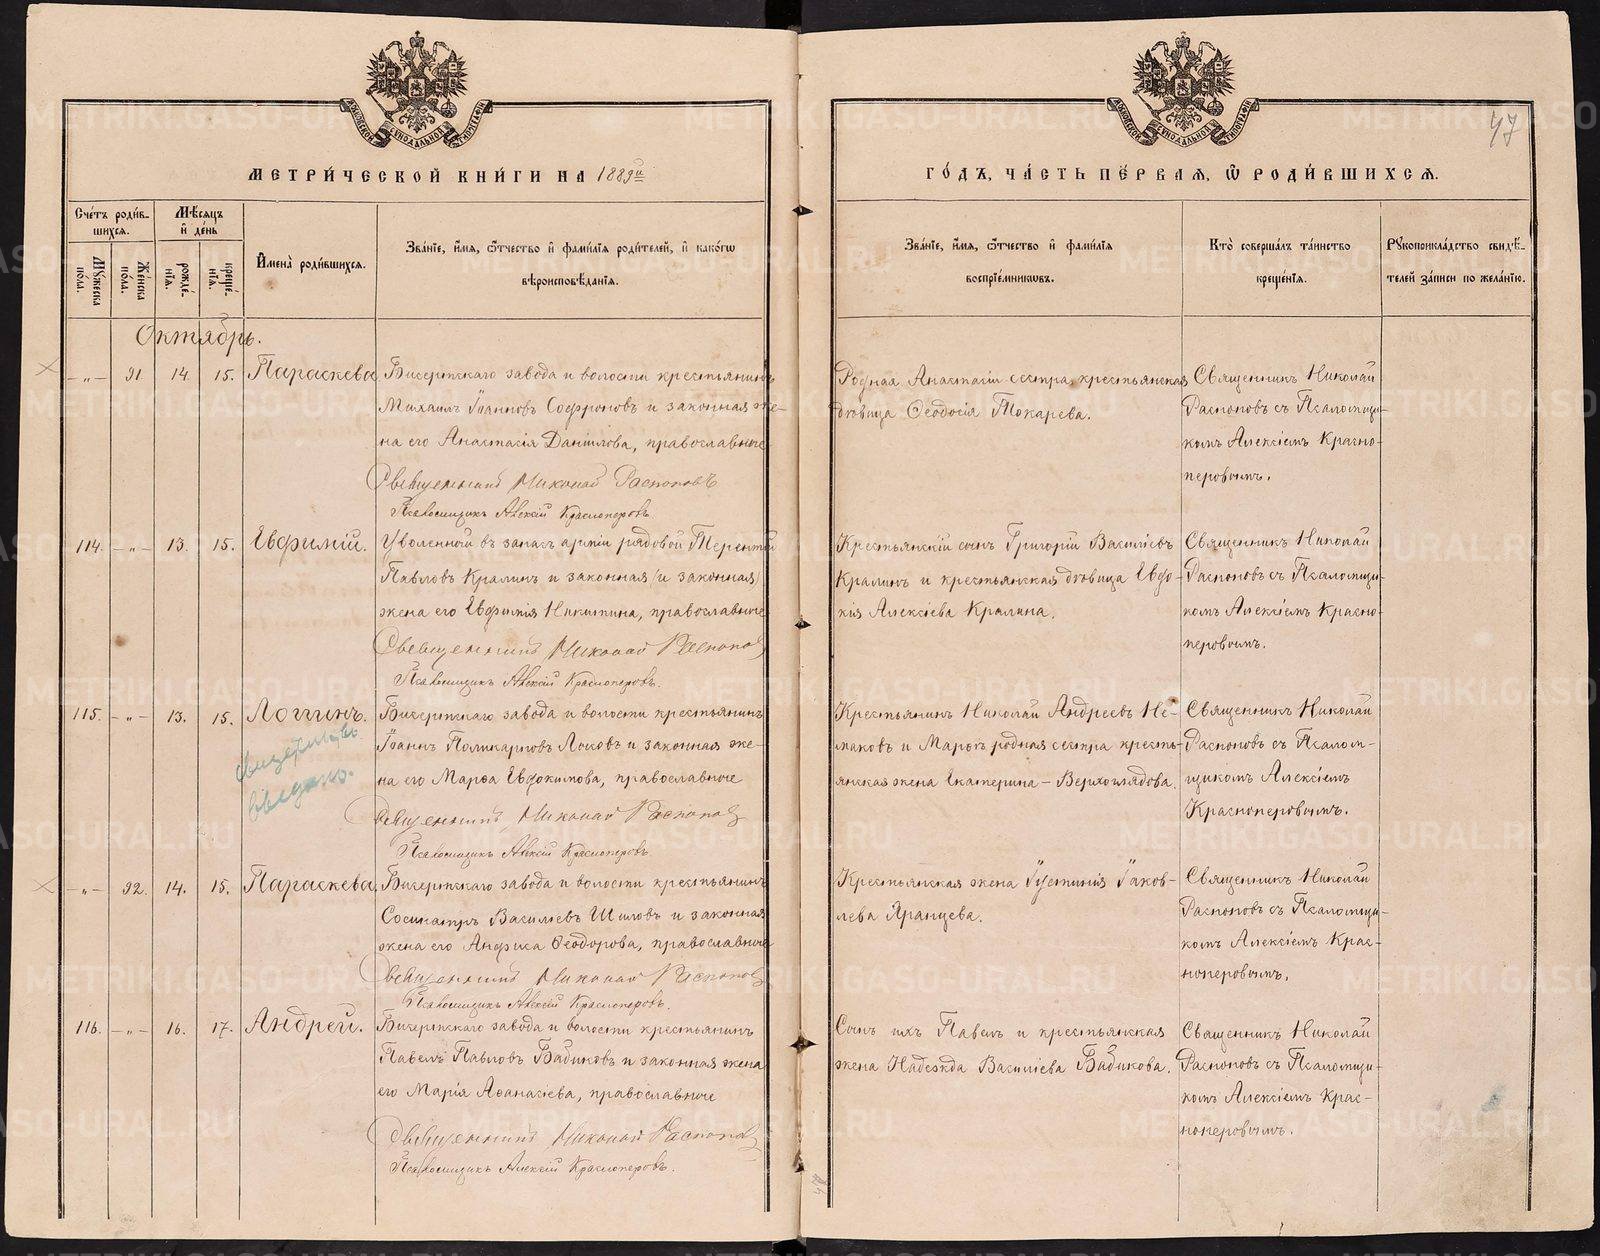 МЕТРИ́ЧЕСКОЙ КНИ́ГИ НА 1889й
ГО́ДЪ, ЧА́СТЬ ПЕ́РВАЯ, Ѿ РОДИ́ВШИХСЯ.
47
Сче́тъ роди́в-
шихся.
Му́жеска пола.
Же́нска пола.
Мѣ́сяцъ
и҆ де́нь
рожде́-нїя.
креще́-нїя.
И҆мена̀ роди́вшихся.
Зва́нїе, и҆́мя, ѻ҆́тчество и҆ фами́лїѧ роди́телей, и҆ како́гѡ
вѣроисповѣ́данїѧ.
Зва́нїе, и҆́мя, ѻ҆́тчество и҆ фами́лїѧ
воспрїе́мниковъ.
Кто̀ соверша́лъ та́инство
креще́нїѧ.
Рꙋкоприкла́дство свидѣ́-
телей за́писи по жела́нїю.
Октябрь.
—„— 91. 14. 15. Параскева
Бисертскаго завода и волости крестьянинъ
Михаилъ Іоанновъ Софроновъ и законная же-
на его Анастасія Данилова, православные
Священникъ Николай Распоповъ
Псаломщикъ Алексій Красноперовъ
Родная Анастасіи сестра, крестьянская
вдовица Ѳеодосія Токарева.
Священникъ Николай
Распоповъ съ Псаломщи-
комъ Алексіемъ Красно-
перовымъ.
114. —„— 13. 15. Евфимій.
Уволенной въ запасъ арміи рядовой Терентій
Павловъ Кралинъ и законная (и законная)
жена его Евфимія Никитина, православные
Священникъ Николай Распоповъ
Псаломщикъ Алексій Красноперовъ.
Крестьянскій сынъ Григорій Василіевъ
Кралинъ и крестьянская вдовица Евдо-
кія Алексіева Кралина.
Священникъ Николай
Распоповъ съ Псаломщи-
комъ Алексіемъ Красно-
перовымъ.
115. —„— 13. 15. Логгинъ.
Бисертскаго завода и волости крестьянинъ
Іоаннъ Поликарповъ Локовъ и законная же-
на его Марѳа Евдокимова, православные
Священникъ Николай Распоповъ
Псаломщикъ Алексій Красноперовъ
Крестьянинъ Николай Андреевъ
и Марѳы родная сестра кресть-
янская жена Екатерина – Верхоглядова.
Священникъ Николай
Распоповъ съ Псалом-
щикомъ Алексіемъ
Красноперовымъ.
—„— 92. 14. 15. Параскева
Бисертскаго завода и волости крестьянинъ
Сосипатръ Василіевъ Шиловъ и законная
жена его Анфиса Ѳеодорова, православные
Священникъ Николай Распоповъ
Псаломщикъ Алексій Красноперовъ.
Крестьянская жена Іустинія Іаков-
лева Яранцева.
Священникъ Николай
Распоповъ съ Псаломщи-
комъ Алексіемъ Крас-
ноперовымъ.
116. —„— 16. 17. Андрей.
Бисертскаго завода и волости крестьянинъ
Павелъ Павловъ Бабиковъ и законная жена
его Марія Аѳанасіева, православные
Священникъ Николай Распоповъ
Псаломщикъ Алексій Красноперовъ.
Сынъ ихъ Павелъ и крестьянская
жена Надежда Василіева Бабикова.
Священникъ Николай
Распоповъ съ Псаломщи-
комъ Алексіемъ Крас-
ноперовымъ.
METRIKI.GASO-URAL.RU